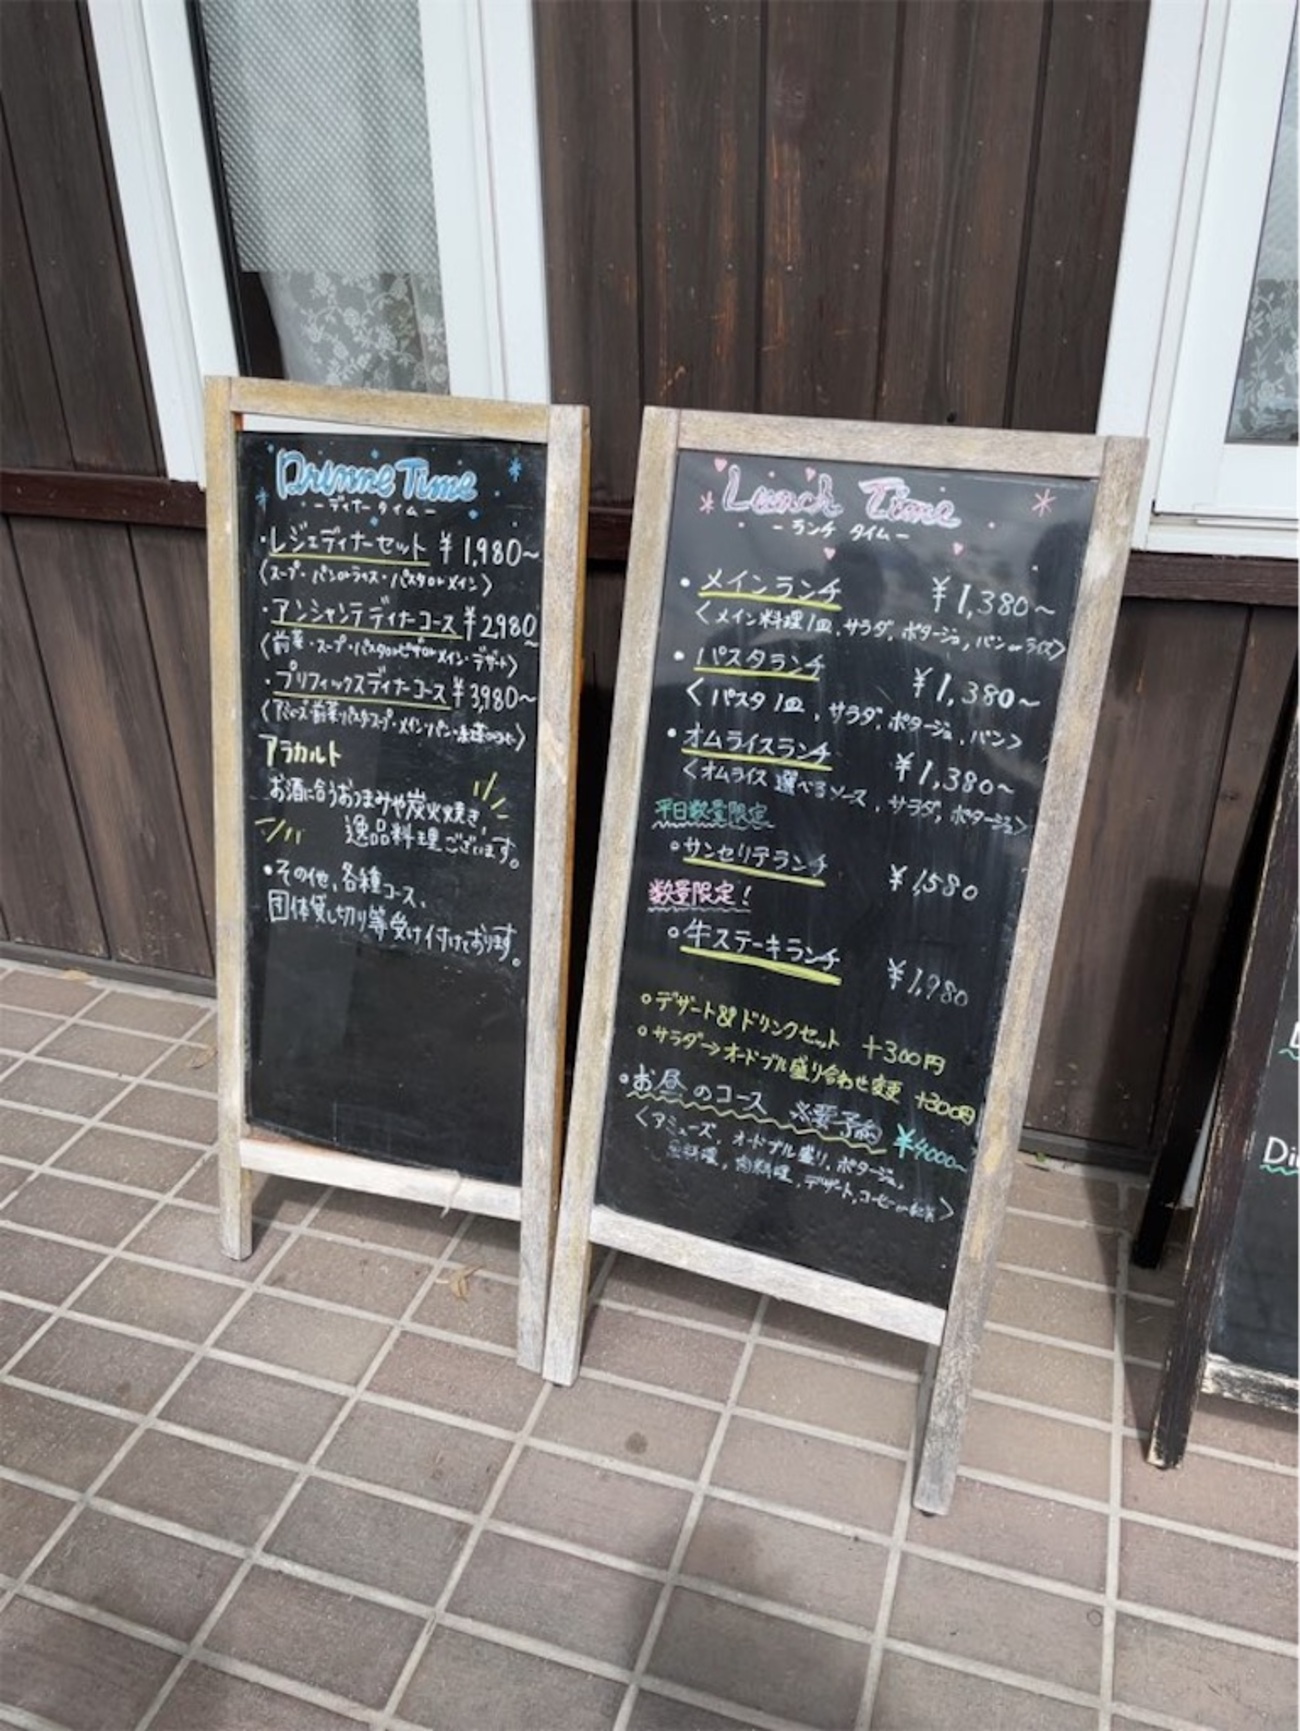 Dinner Time
－ディナータイム－
・レジェディナーセット ¥1,980～
〈スープ・パンorライス・パスタorメイン〉
・アンシャンテディナーコース ¥2980～
〈前菜・スープ・パスタorピザorメイン・デザート〉
・プリフィックスディナーコース ¥3,980～
アラカルト
お酒に合うおつまみや炭火焼き、
逸品料理ございます。
・その他、各種コース、
団体貸し切り等受け付けております。
Lunch Time
－ランチ タイム－
・メインランチ ¥1,380～
〈メイン料理1皿、サラダ、ポタージュ、パンorライス〉
・パスタランチ ¥1,380～
〈パスタ1皿、サラダ、ポタージュ、パン〉
・オムライスランチ ¥1,380～
〈オムライス選べるソース、サラダ、ポタージュ〉
平日数量限定
○サンセリテランチ ¥1,580
数量限定！
○牛ステーキランチ ¥1,980
○デザート&ドリンクセット +300円
○サラダ→オードブル盛り合わせ変更 +300円
・お昼のコース ※要予約 ¥4000～
〈アミューズ、オードブル盛り、ポタージュ、
魚料理、肉料理、デザート、コーヒーor紅茶〉